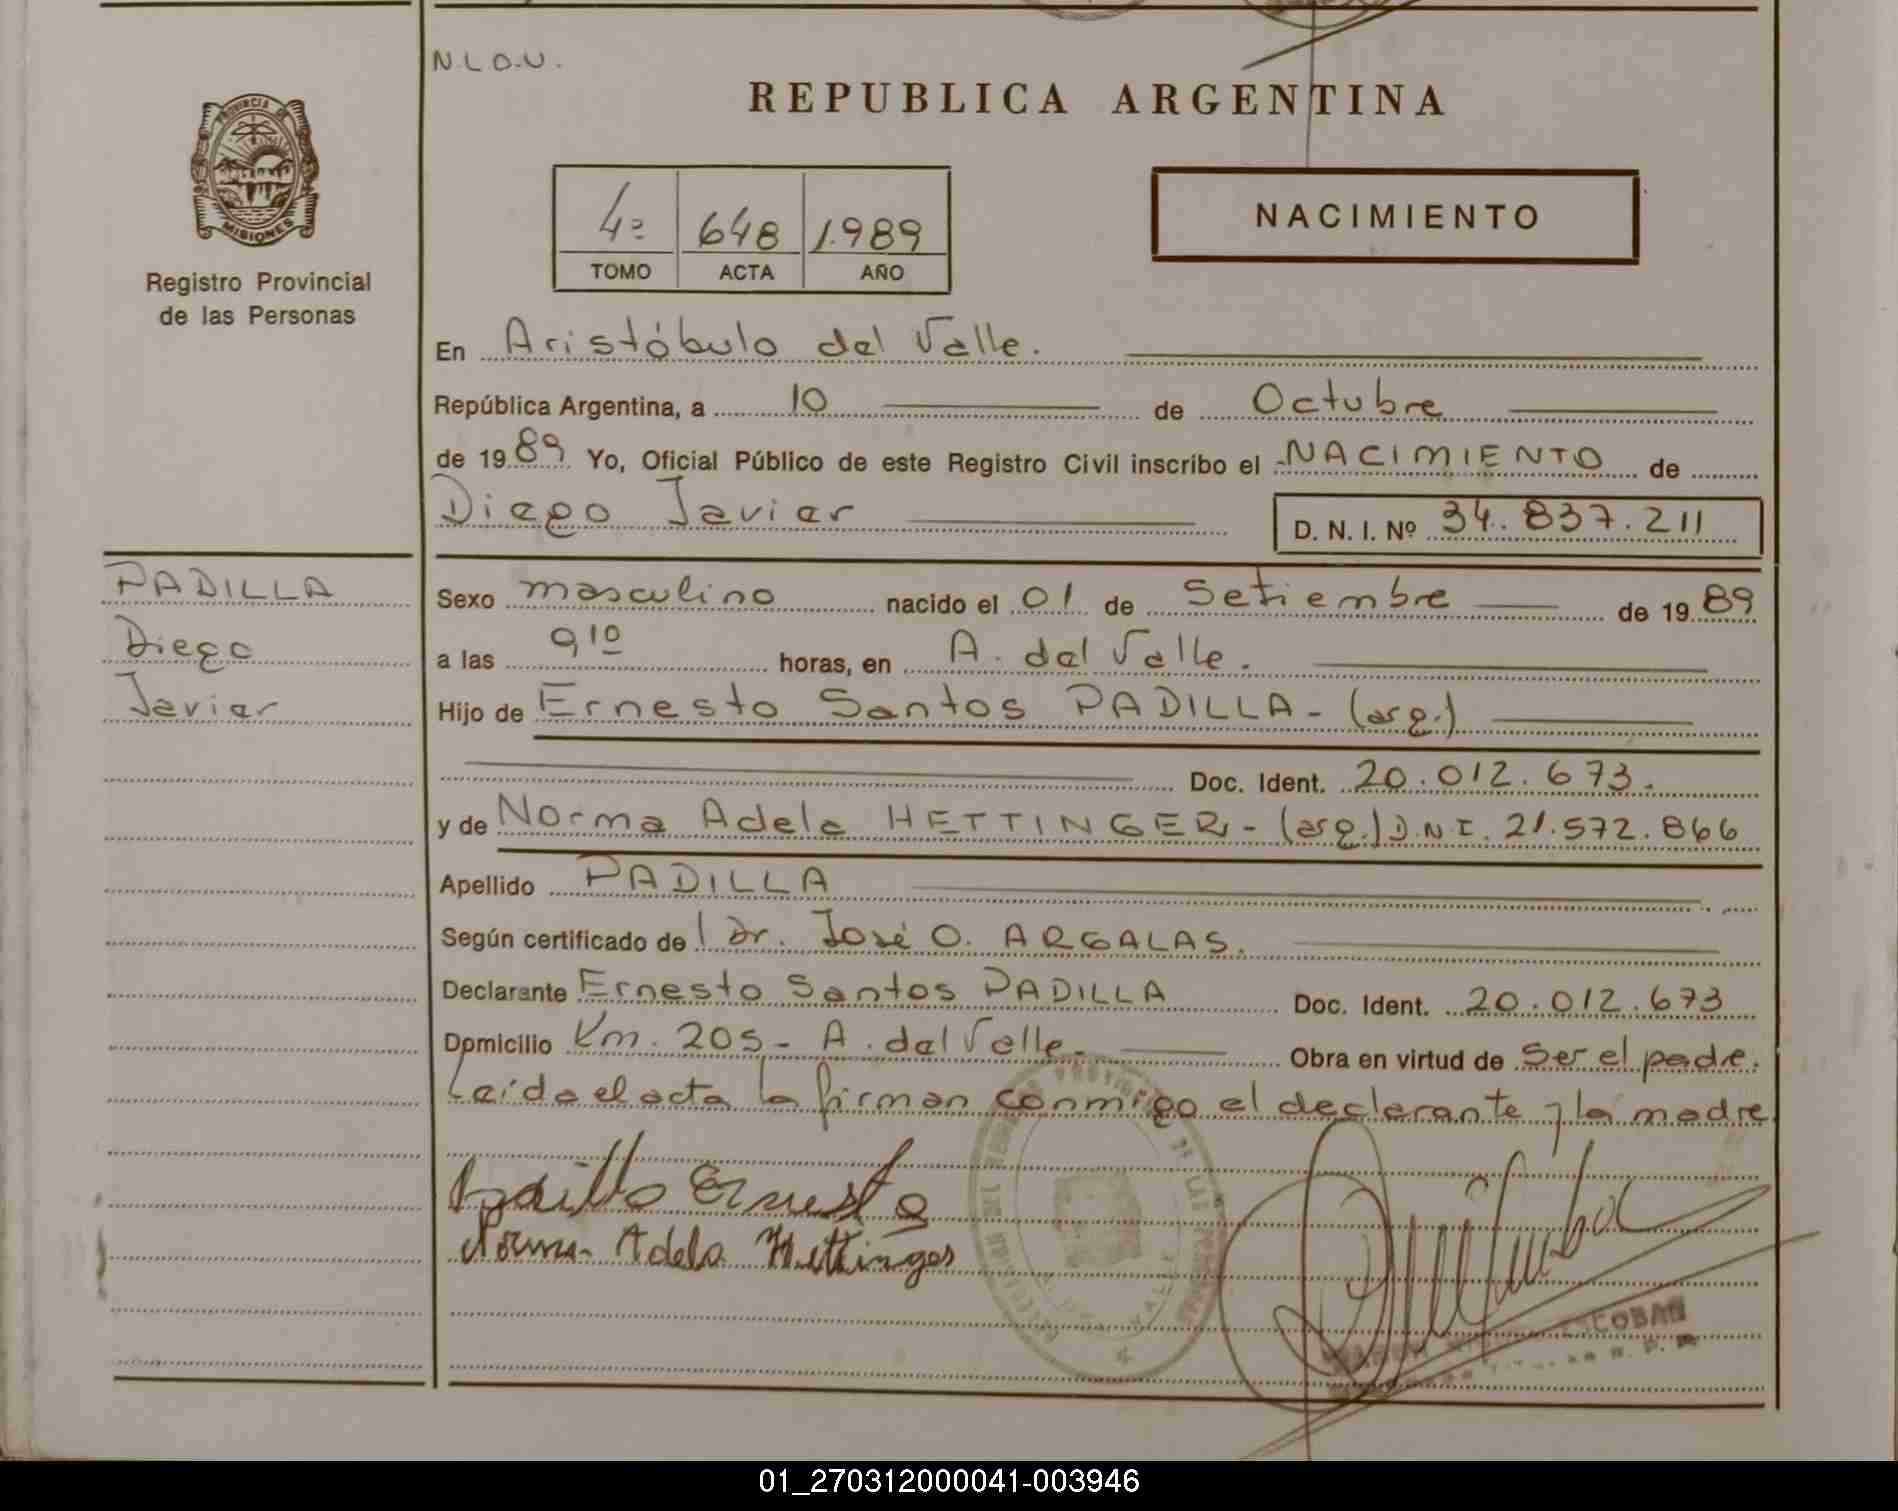 N.L.O.U.
REPUBLICA ARGENTINA
PROVINCIA DE
MISIONES
Registro Provincial
de las Personas
4º 648 1.989
TOMO ACTA AÑO
NACIMIENTO
En Aristóbulo del Valle.
República Argentina, a 10 de Octubre
de 1989 Yo, Oficial Público de este Registro Civil inscribo el NACIMIENTO de
Diego Javier D. N. I. Nº 34.837.211
PADILLA
Diego
Javier
Sexo masculino nacido el 01 de Setiembre de 1989
a las 9¹⁰ horas, en A. del Valle.
Hijo de Ernesto Santos PADILLA - (arg.)
Doc. Ident. 20.012.673.
y de Norma Adela HETTINGER - (arg.) D.N.I. 21.572.866
Apellido PADILLA
Según certificado de Dr. José O. ARGALAS.
Declarante Ernesto Santos PADILLA Doc. Ident. 20.012.673
Domicilio Km. 205 - A. del Valle - Obra en virtud de Ser el padre.
Leída el acta la firman conmigo el declarante y la madre
Padilla Ernesto
Norma Adela Hettinger
ESCOBAR
01_270312000041-003946